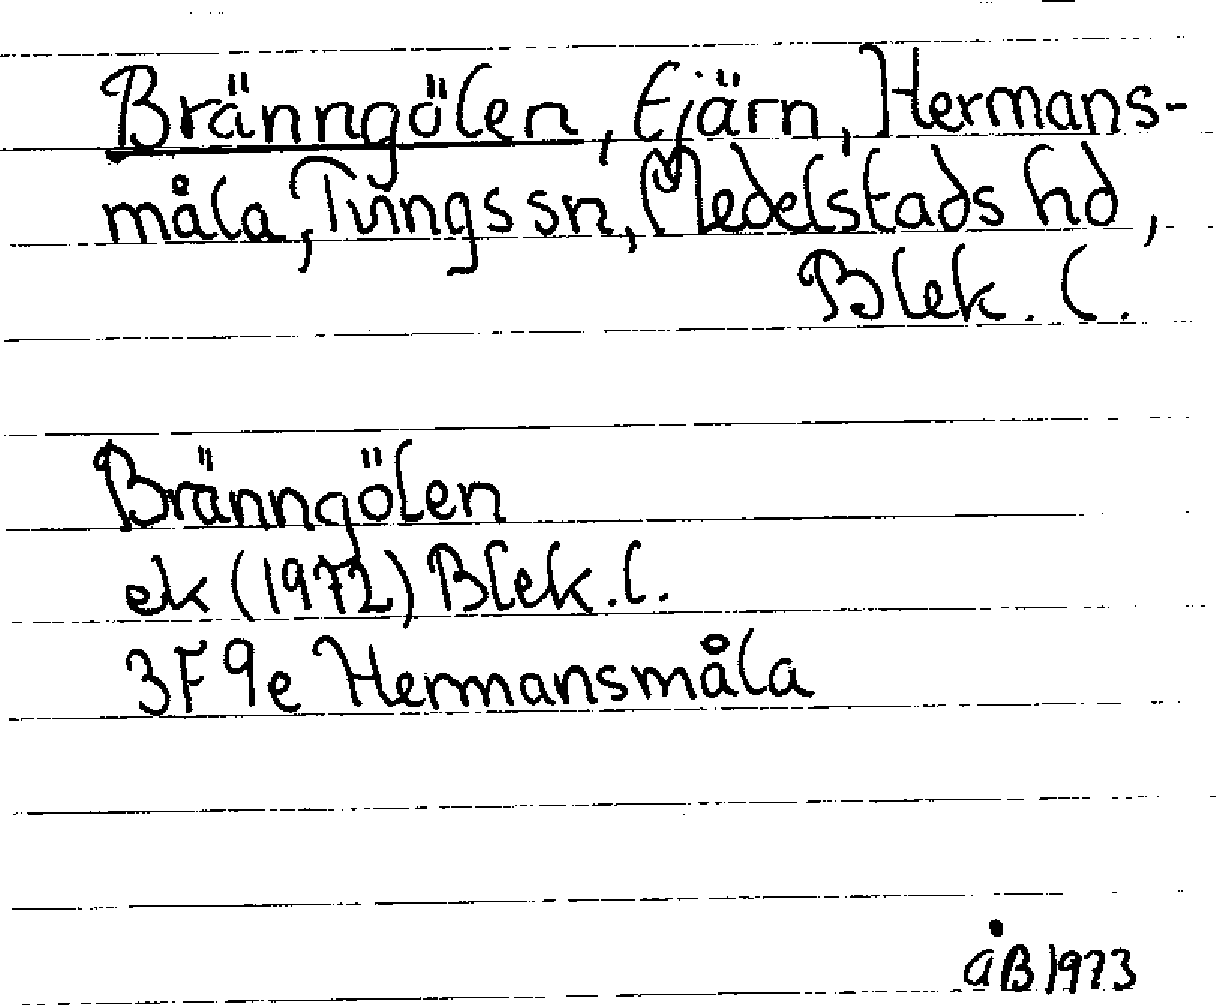 Bränngölen, tjärn, Hermans-
måla, Tvings sn, Medelstads hd,
Blek. l.
Bränngölen
ek (1972) Blek. l.
3F 9e Hermansmåla
åB 1973